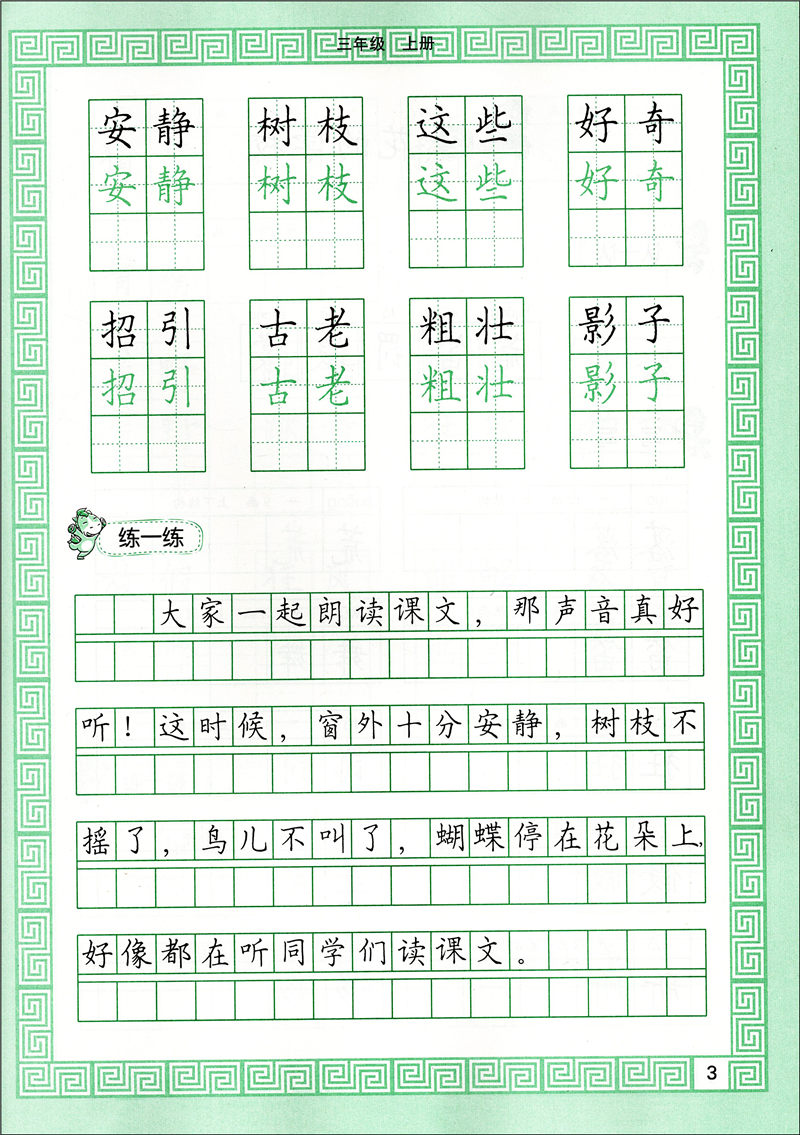 三年级 上册
安静 树枝 这些 好奇
安静 树枝 这些 好奇
招引 古老 粗壮 影子
招引 古老 粗壮 影子
练一练
大家一起朗读课文，那声音真好
听！这时候，窗外十分安静，树枝不
摇了，鸟儿不叫了，蝴蝶停在花朵上，
好像都在听同学们读课文。
3